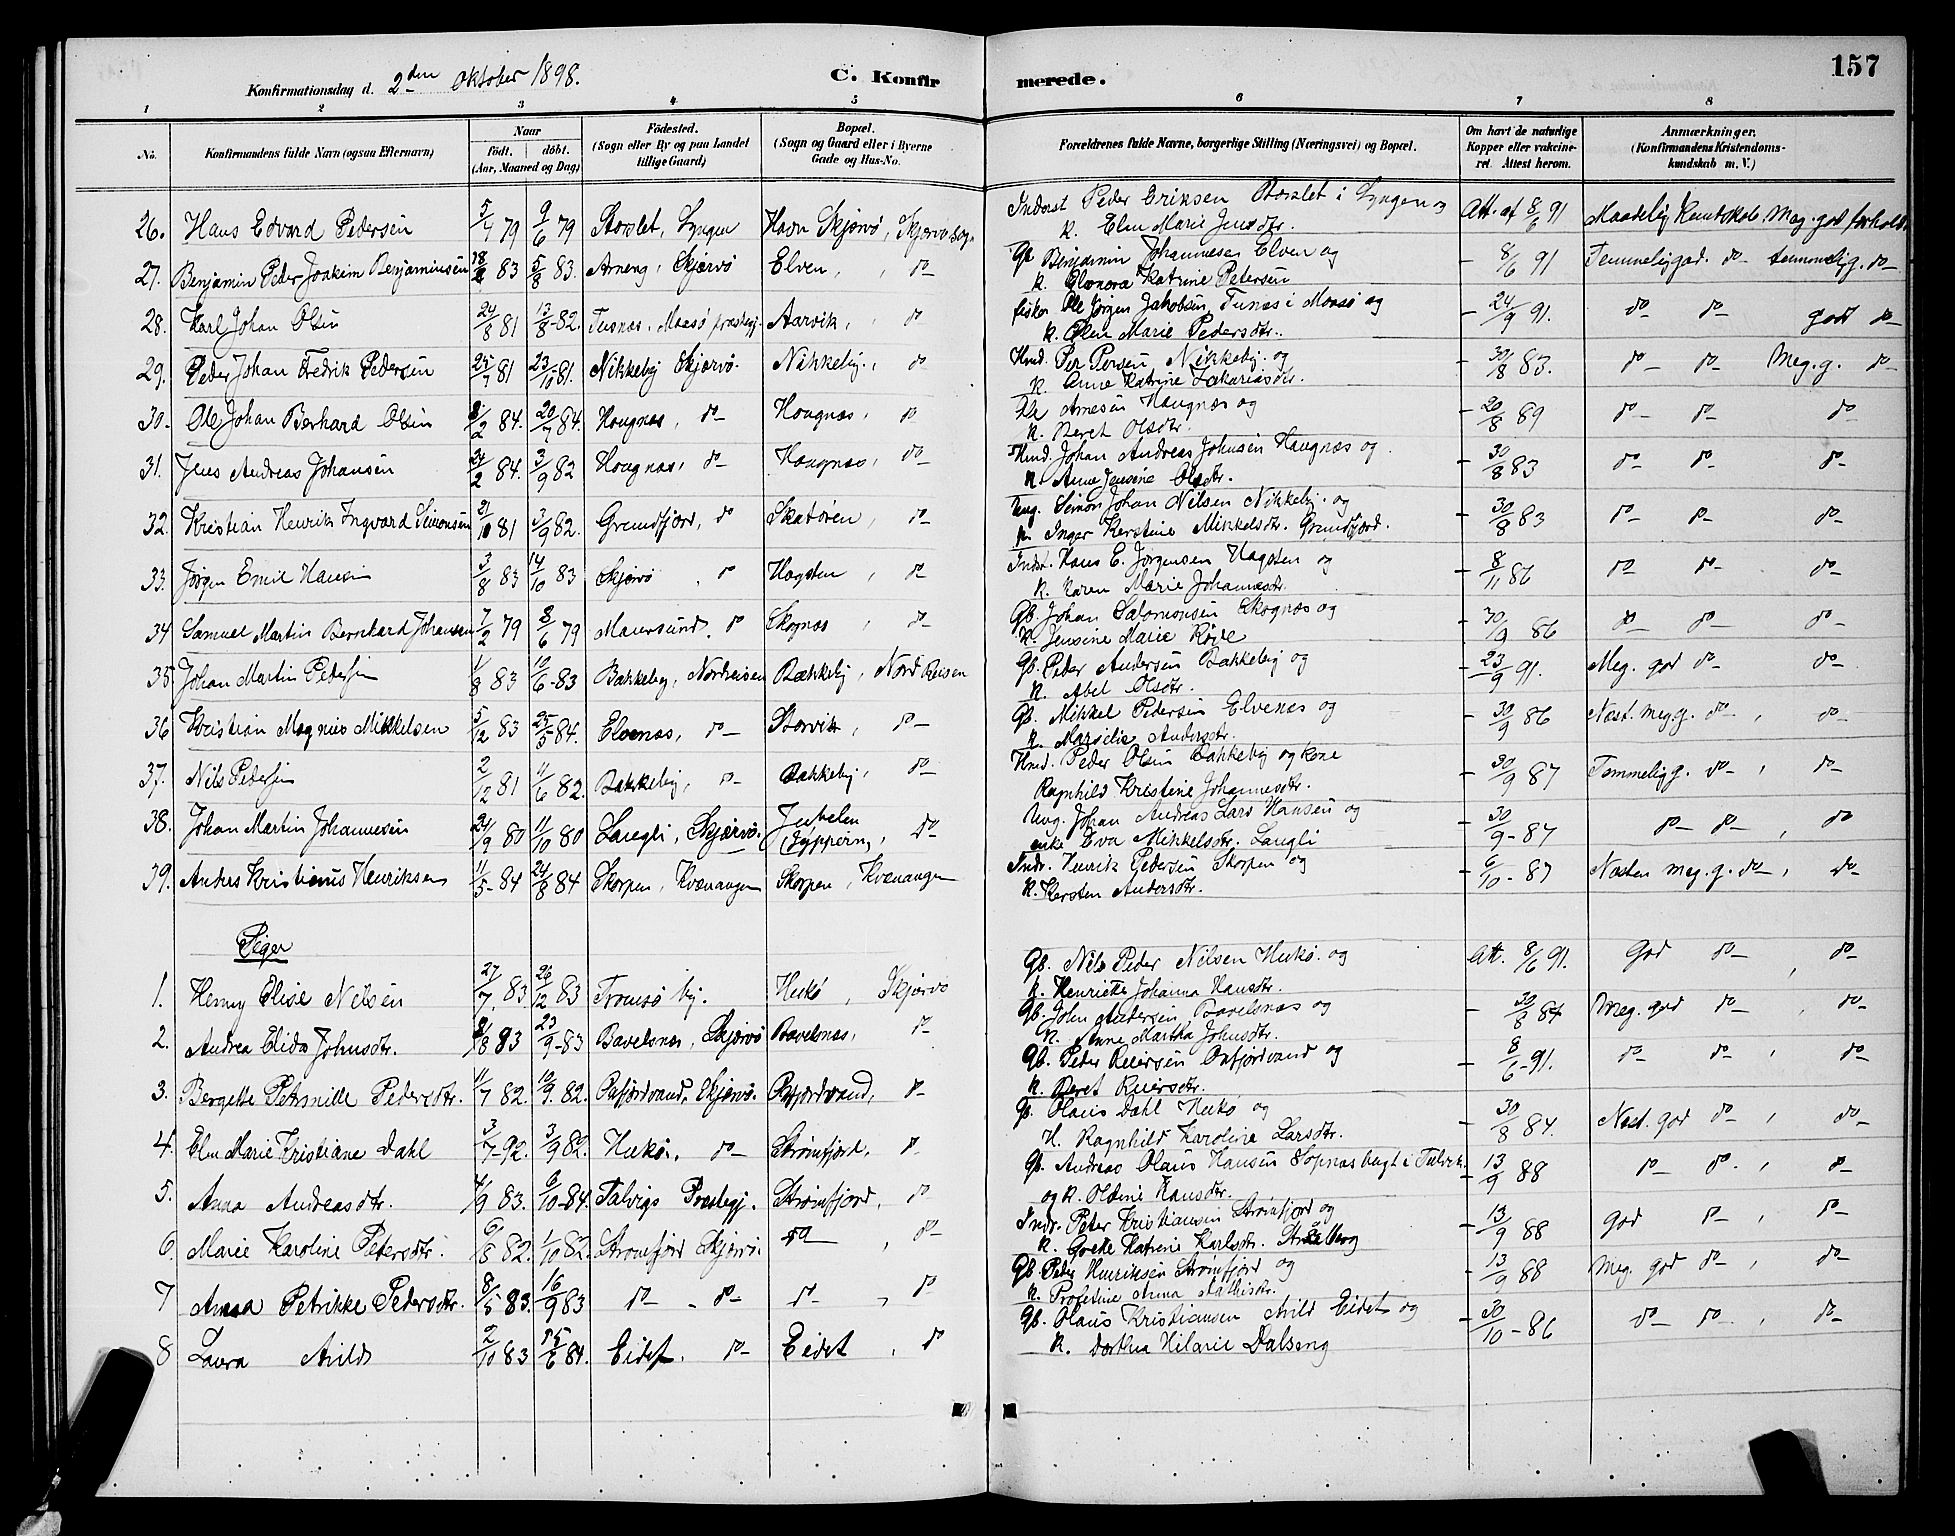 157
Konfirmationsdag d. 2den Oktober 1898. C. Konfirmerede.
1 2 3 4 5 6 7 8
No. Konfirmandens fulde Navn (ogsaa Efternavn) Naar födt. döbt. (Aar, Maaned og Dag) Födested. (Sogn eller By og paa Landet tillige Gaard) Bopæl. (Sogn og Gaard eller i Byerne Gade og Hus-No. Forældrenes fulde Navne, borgerlige Stilling (Næringsvei) og Bopæl. Om havt de naturlige Kopper eller vakcineret. Attest herom. Anmærkninger. (Konfirmandens Kristendomskundskab m. V.)
26. Hans Edvard Pedersen 5/4 79 9/6 79 Storslet, Lyngen Havn Skjervö, Skjervö sogn Inderst Peder Eriksen Storslet i Lyngen og Att. af 8/6 91 Maadelig Kundskab. Meg. god forhold.
K. Elen Marie Jensdtr.
27. Benjamin Peter Joakim Benjaminsen 83 5/8 83. Arneng, Skjervö Elven, do Gb. Benjamin Johannesen Elven og – 8/6 91 Temmelig god. do temmelig g. do
K. Elonora Katrine Petersen
28. Karl Johan Olsen 24/8 81 13/8 82. Tusnæs, Maasö præstegj. Aarvik, do fisker Ole Jörgen Jakobsen Tunæs i Maasö og – 24/9 91. do do god do
K. Elen Marie Pedersdtr.
29. Peder Johan Fredrik Pedersen 25/7 81 23/10 81. Nikkeby Skjervö. Nikkeby, do Hmd. Per Persen Nikkeby. og – 30/8 83. do do Meg. g. do
K. Anne Katrine Zakariasdtr.
30. Ole Johan Berhard Olsen 8/2 84. 20/7 84. Hougnæs, do Hougnæs, do Ole Arnesen Haugnæs og – 20/8 89 do do do
K. Beret Olsdtr.
31. Jens Andreas Johansen 24/2 84. 3/9 82 Hougnæs, do Hougnæs, do Hmd. Johan Andreas Johnsen Haugnæs og – 30/8 83 do do do
K. Anne Jensine Olsdtr.
32. Kristian Henrik Ingvard Simonsen 21/10 81 3/9 82. Grundfjord, do Skatören, do Ung. Simon Johan Nilsen Nikkeby. og – 30/8 83 do do do
p. Inger Kerstine Mikkelsdtr. Grundfjord.
33. Jörgen Emil Hansen 3/8 83 14/10 83 Skjervö, do Hagsten, do Indst. Hans E. Jörgensen Hagsten og – 8/11 86 do do do
K. Karen Marie Johannesdtr.
34 Samuel Martin Bernhard Johansen 7/2 79 8/6 79 Maursund, do Skognæs, do Gb. Johan Salomonsen Skognæs og – 30/9 86 do do do
K. Jensine Marie Röde
35 Johan Martin Petersen 1/8 83 10/6 83 Bakkeby, Nordreisen Bakkeby, Nord Reisen Gb. Peter Andersen Bakkeby og – 23/9 91. Meg. god do do
K. Abel Olsdtr.
36 Kristian Magnus Mikkelsen 5/12 83 25/5 84. Elvenæs, do Storvik, do Gb. Mikkel Pedersen Elvenæs og – 30/9 86 Næst. meg g. do, do
K. Marselie Andersdtr.
37. Nils Petersen 2/12 81 11/6 82. Bakkeby, do Bakkeby, do Hmd. Peder Olsen Bakkeby og Kone – 30/9 87 Temmelig g. do, do
Ragnhild Kristine Johannesdtr.
38. Johan Martin Johannesen 24/9 80 11/10 80 Laugli, Skjervö. Jubelen do Ung. Johan Andreas Lars Hansen og – 30/9 87 do do, do
enke Eva Mikkelsdtr. Laugli
39. Andres Kristianus Henriksen 11/5 84 24/8 84 Skorpen, Kvænangen Skorpen, Kvænangen Indr. Henrik Pedersen Skorpen og – 6/10 87 Næsten meg. g. do, do
K. Kersten Andersdtr.
Piger
1. Henny Elise Nilsen 27/7 83 26/12 83 Tromsö by. Hukö, Skjervö Gb. Nils Peder Nilsen Hukö. og Att. 8/6 91. God do, do
K. Henriette Johanna Hansdtr.
2. Andrea Elida Johnsdtr. 21/8 83 23/9 83 Bavelsnæs, Skjervö Bavelsnæs, do Gb. John Andersen Bavelsnæs og – 30/8 84 Meg. god do, do
K. Anne Martha Johnsdtr.
3. Bergette Petrnille Pedersdtr. 11/7 82. 10/9 82. Oxfjordvand, Skjervö. Oxfjordvand, do Gb. Peder Reiersen Oxfjordvand og – 8/6 91. do do, do
K. Beret Reiersdtr.
4. Elen Marie Kristiane Dahl 3/7 92. 3/9 82. Hukö, do Strömfjord, do Gb. Olaus Dahl Hukö og – 30/8 84. Næst. god do, do
K. Ragnhild Karoline Larsdtr.
5. Anna Andreasdtr. 4/9 83. 6/10 84. Talvigs Præstegj. Strömfjord, do Gb. Andreas Olaus Hansen Sopnæsbugt i Talvik. – 13/9 88 do do, do
og K. Oldine Hansdtr.
6. Marie Karoline Petersdtr. 6/8 82. 1/10 82. Strömfjord Skjervö. do, do Indr. Peter Kristiansen Strömfjord og – 13/9 88 God do, do
K. Grethe Katrine Karlsdtr. Strælberg
7 Anna Petrikke Pedersdtr. 8/5 83. 16/9 83 do, do do, do Gb. Peder Henriksen Strömfjord og – 13/9 88 Meg. god do, do
K. Profetine Anna Mathisdtr.
8 Laura Arild 2/10 83 15/6 84. Eidet, do Eidet, do Gb. Olaus Kristiansen Arild Eidet og – 30/10 86 do do, do
K. Dorthea Hilarie Dalseng